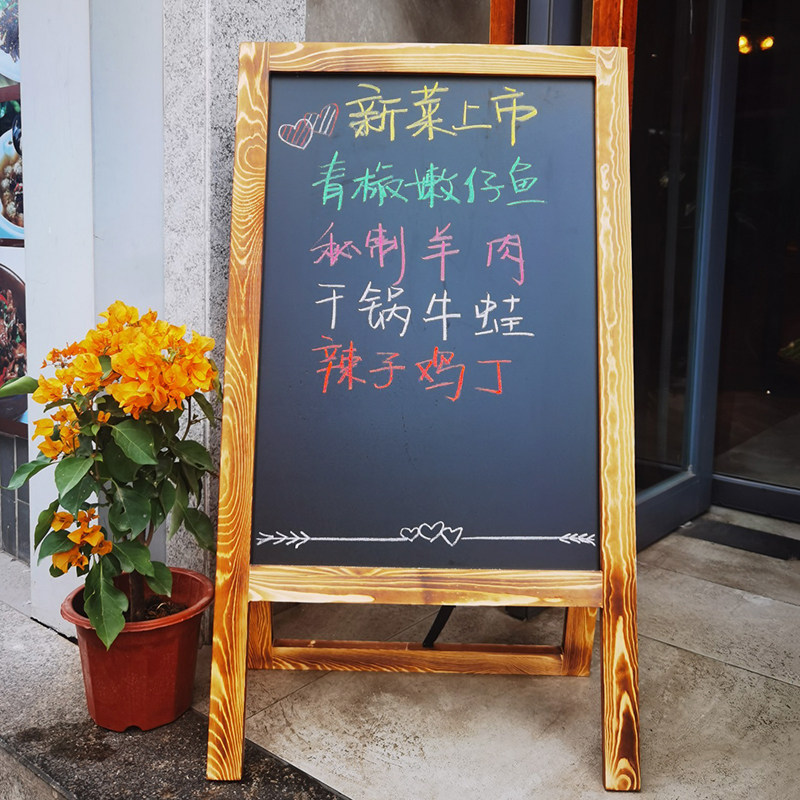 新菜上市
青椒嫩仔鱼
秘制羊肉
干锅牛蛙
辣子鸡丁